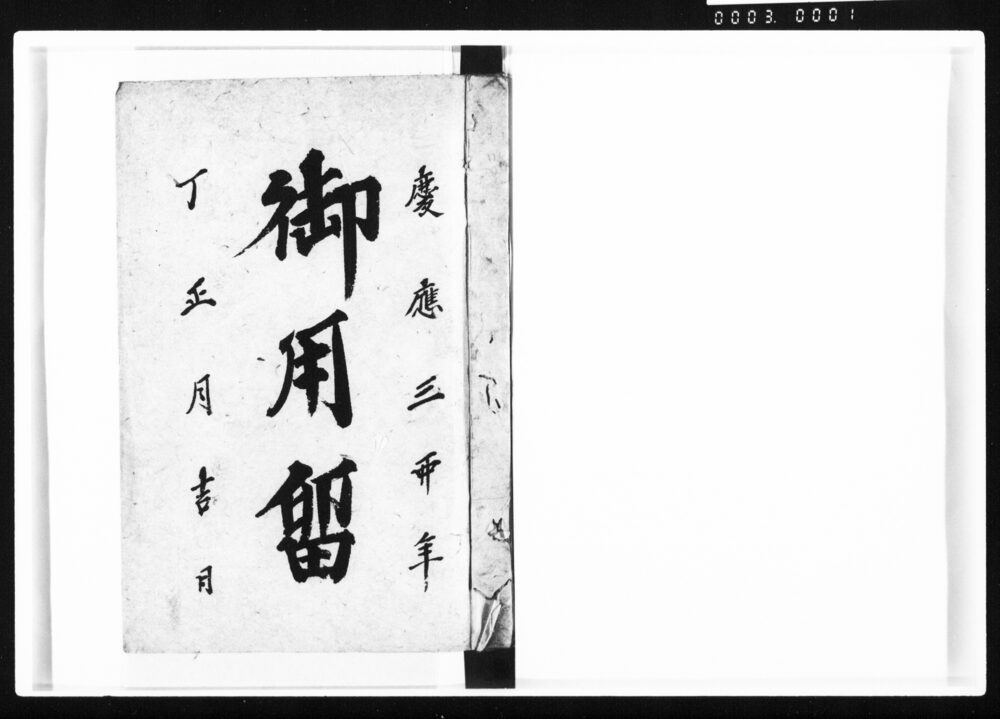 0003. 0001
慶應三卯年
御用留
丁正月吉日